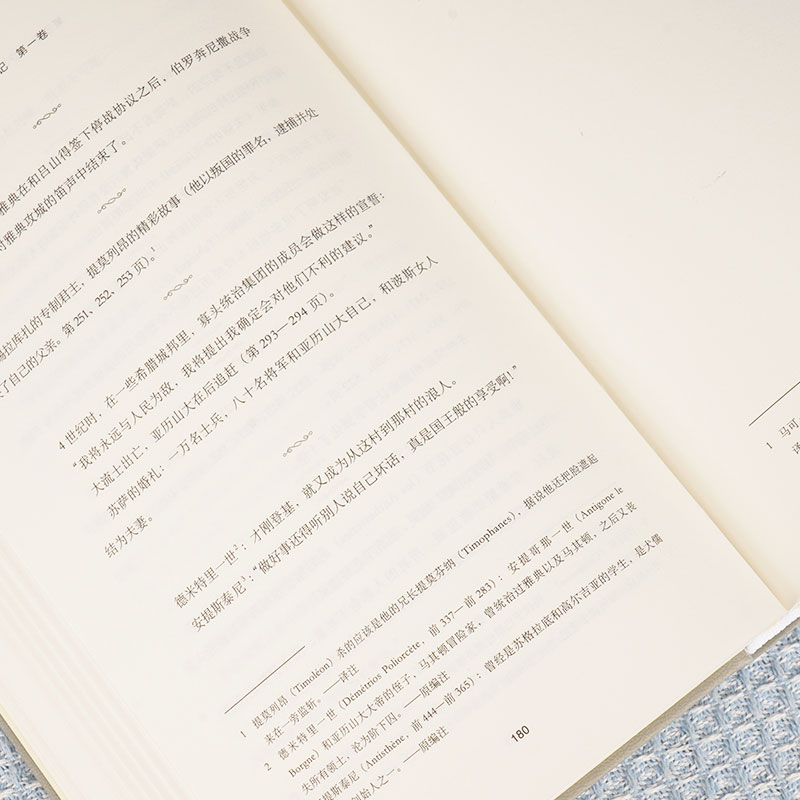 记 第一卷
雅典在和吕山得签下停战协议之后，伯罗奔尼撒战争
对雅典攻城的笛声中结束了。
拉库扎的专制君主，提莫列昂的精彩故事（他以叛国的罪名，逮捕并处
了自己的父亲。第 251、252、253 页）。¹
4 世纪时，在一些希腊城邦里，寡头统治集团的成员会做这样的宣誓：
“我将永远与人民为敌，我将提出我确定会对他们不利的建议。”
大流士出亡，亚历山大在后追赶（第 293—294 页）。
苏萨的婚礼：一万名士兵，八十名将军和亚历山大自己，和波斯女人
结为夫妻。
德米特里一世²：才刚登基，就又成为从这村到那村的浪人。
安提斯泰尼³：“做好事还得听别人说自己坏话，真是国王般的享受啊！”
1 提莫列昂（Timoléon）杀的应该是他的兄长提莫芬纳（Timophanes），据说他还把脸遮起
来在一旁监斩。——译注
2 德米特里一世（Démétrios Poliorcète，前 337—前 283）：安提哥那一世（Antigone le
Borgne）和亚历山大大帝的侄子，马其顿冒险家，曾统治过雅典以及马其顿，之后又丧
失所有领土，沦为阶下囚。——原编注
安提斯泰尼（Antisthène，前 444—前 365）：曾经是苏格拉底和高尔吉亚的学生，是犬儒
创始人之一。——原编注
180
1 马可
译